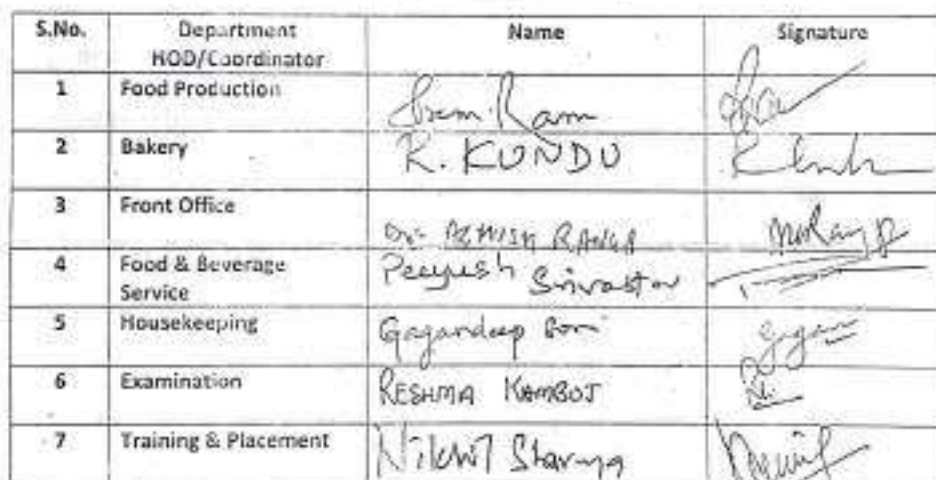 S.No. Department HOD/Coordinator Name Signature
1 Food Production Ram
2 Bakery R. KUNDU
3 Front Office
4 Food & Beverage Service Peeyush Srivastav
5 Housekeeping Gagandeep Soni
6 Examination RESHMA KAMBOJ
7 Training & Placement Nikhil Sharma